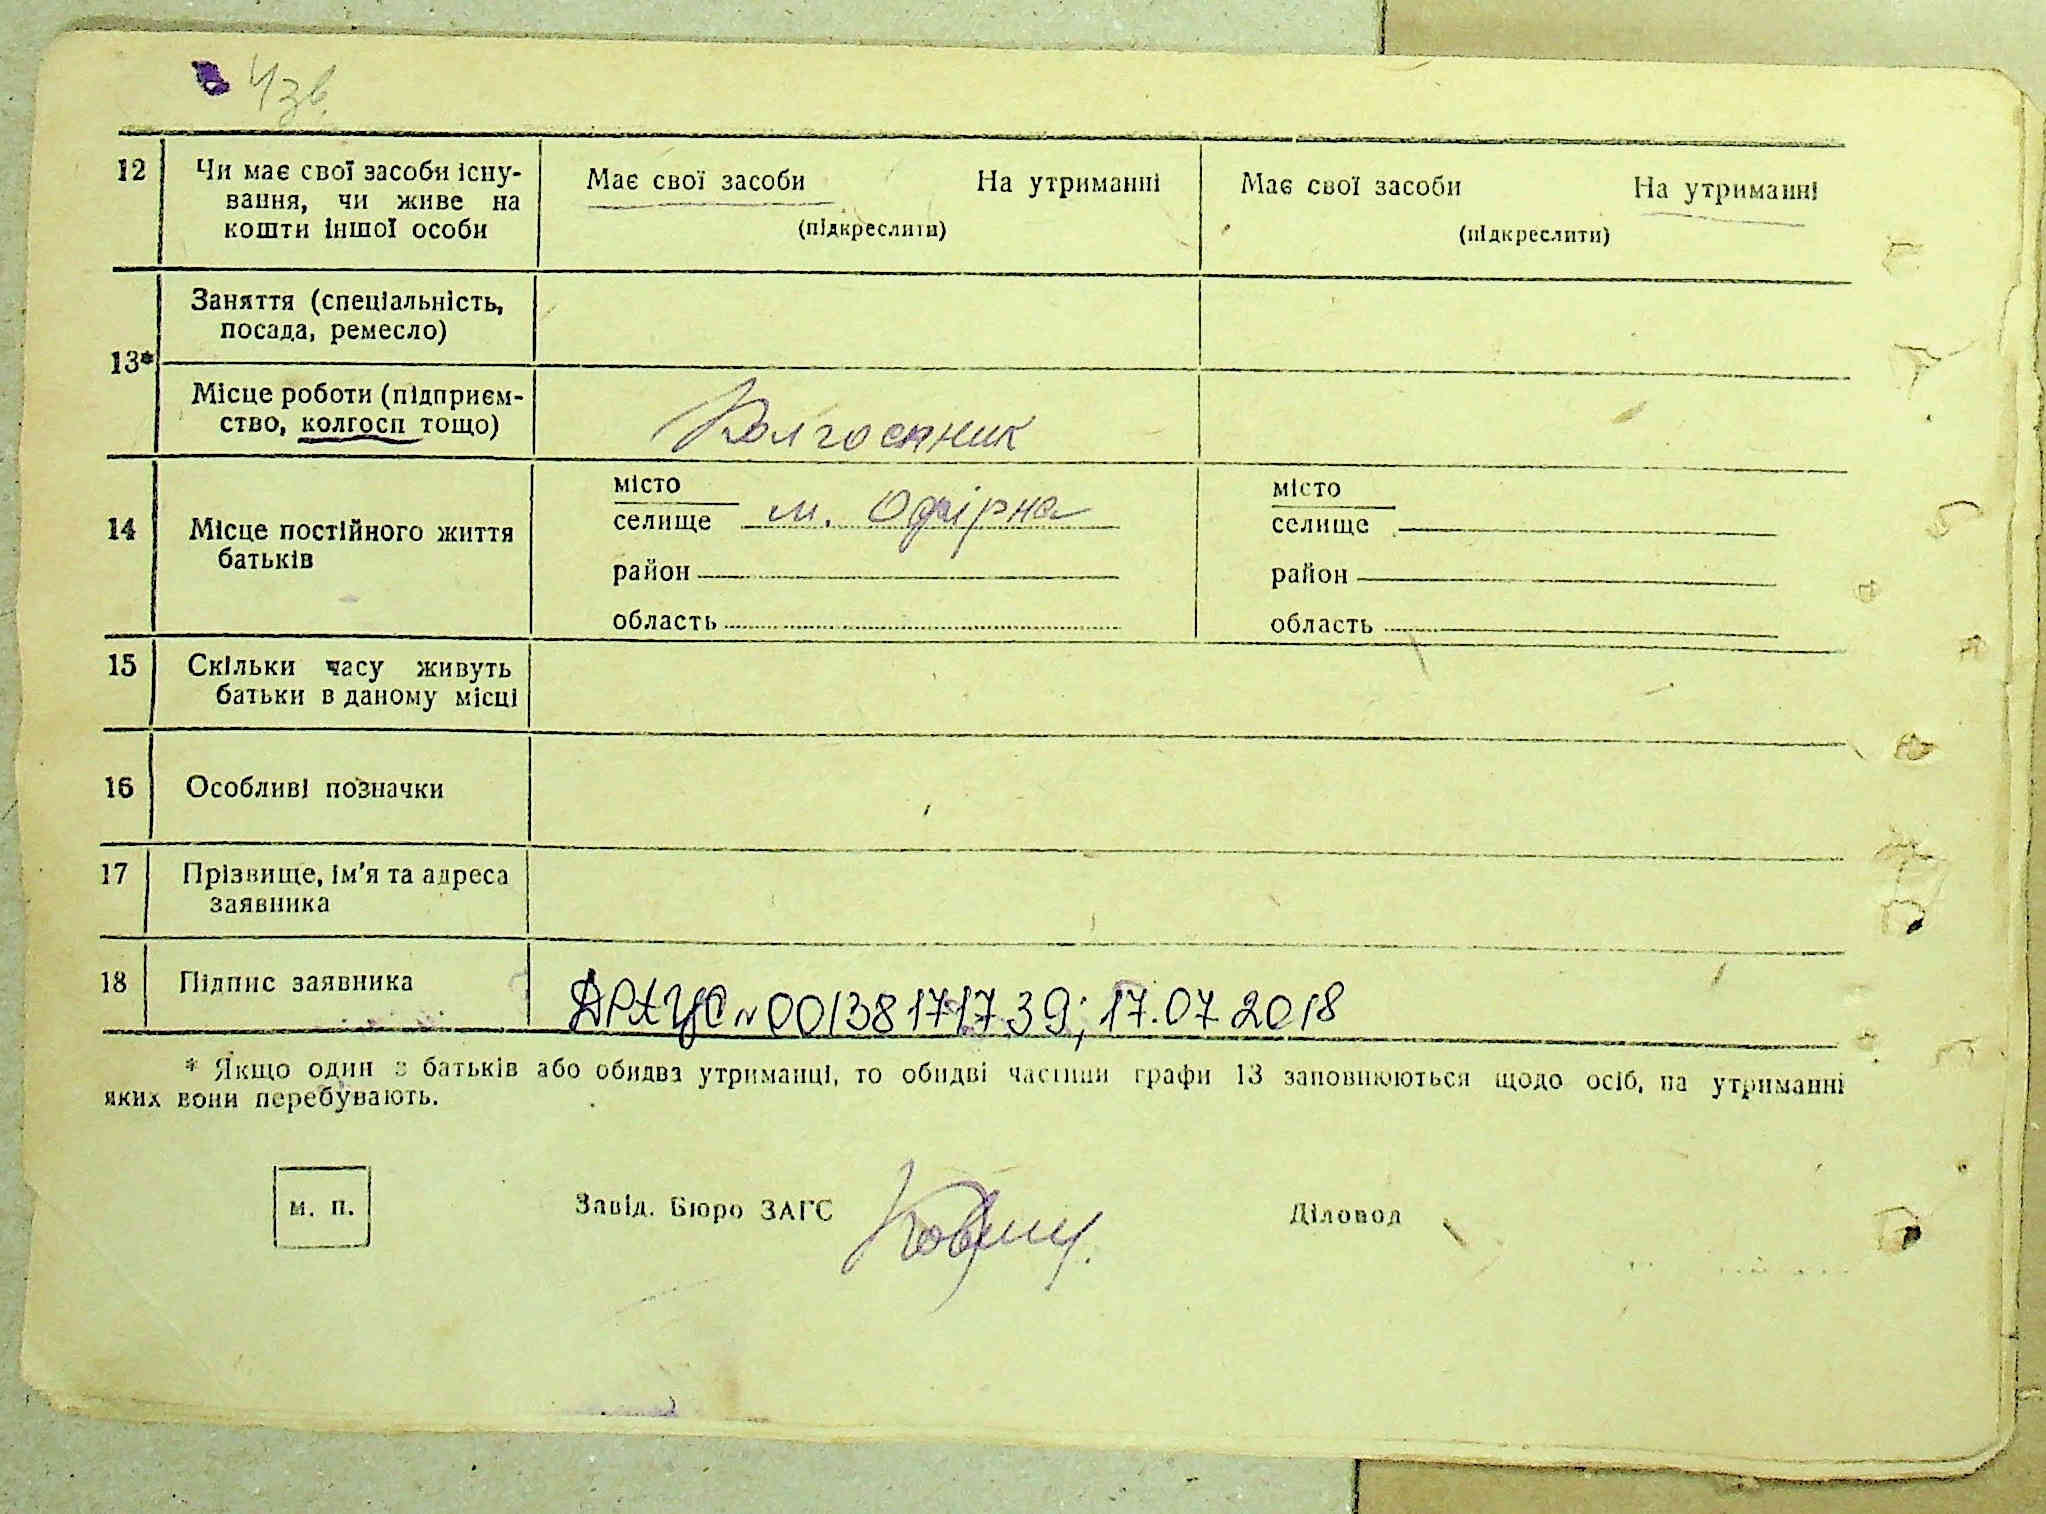 4 зв.
12 Чи має свої засоби існу- Має свої засоби На утриманні Має свої засоби На утриманні
вання, чи живе на (підкреслити) (підкреслити)
кошти іншої особи
Заняття (спеціальність,
посада, ремесло)
13*
Місце роботи (підприєм-
ство, колгосп тощо) Колгоспник
місто місто
селище м. Офірна селище
14 Місце постійного життя
батьків
район район
область область
15 Скільки часу живуть
батьки в даному місці
16 Особливі позначки
17 Прізвище, ім'я та адреса
заявника
18 Підпис заявника ДРАЦС № 00138171739; 17.07 2018
* Якщо один з батьків або обидва утриманці, то обидві частини графи 13 заповнюються щодо осіб, на утриманні
яких вони перебувають.
м. п. Завід. Бюро ЗАГС Діловод